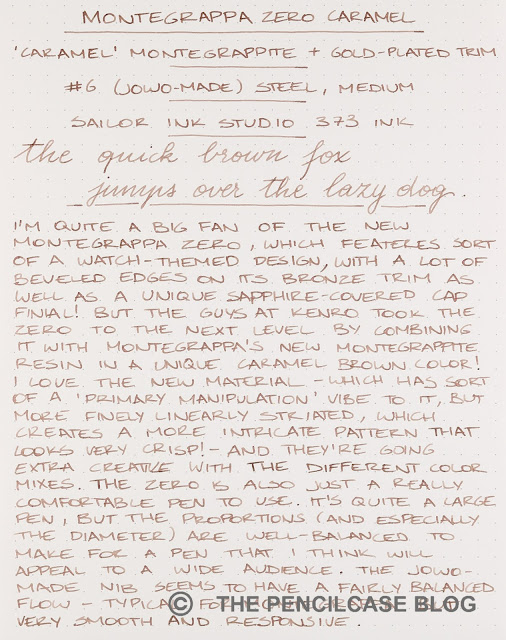 MONTEGRAPPA ZERO CARAMEL
'CARAMEL' MONTEGRAPPITE + GOLD-PLATED TRIM
#6 (JOWO-MADE) STEEL, MEDIUM
SAILOR INK STUDIO 373 INK
the quick brown fox
jumps over the lazy dog.
I'M QUITE A BIG FAN OF THE NEW
MONTEGRAPPA ZERO, WHICH FEATERES SORT
OF A WATCH-THEMED DESIGN, WITH A LOT OF
BEVELED EDGES ON ITS BRONZE TRIM AS
WELL AS A UNIQUE SAPPHIRE-COVERED CAP
FINIAL! BUT THE GUYS AT KENRO TOOK THE
ZERO TO THE NEXT LEVEL BY COMBINING
IT WITH MONTEGRAPPA'S NEW MONTEGRAPPITE
RESIN IN A UNIQUE CARAMEL BROWN COLOR!
I LOVE THE NEW MATERIAL - WHICH HAS SORT
OF A 'PRIMARY MANIPULATION' VIBE TO IT, BUT
MORE FINELY LINEARLY STRIATED, WHICH
CREATES A MORE INTRICATE PATTERN THAT
LOOKS VERY CRISP! - AND THEY'RE GOING
EXTRA CREATIVE WITH THE DIFFERENT COLOR
MIXES. THE ZERO IS ALSO JUST A REALLY
COMFORTABLE PEN TO USE. IT'S QUITE A LARGE
PEN, BUT THE PROPORTIONS (AND ESPECIALLY
THE DIAMETER) ARE WELL-BALANCED TO
MAKE FOR A PEN THAT I THINK WILL
APPEAL TO A WIDE AUDIENCE. THE JOWO-
MADE NIB SEEMS TO HAVE A FAIRLY BALANCED
FLOW - TYPICAL FOR
© THE PENCILCASE BLOG
VERY SMOOTH AND RESPONSIVE.